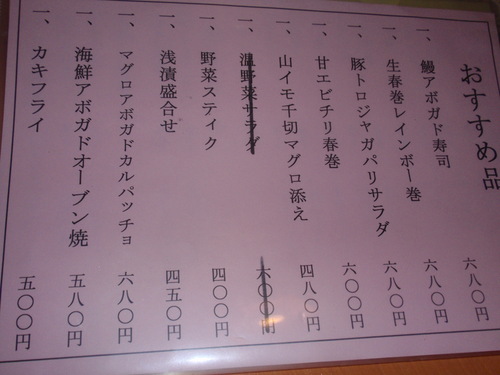 おすすめ品
一、鰻アボガド寿司 六八〇円
一、生春巻レインボー巻 六八〇円
一、豚トロジャガパリサラダ 六八〇円
一、甘エビチリ春巻 六〇〇円
一、山イモ千切マグロ添え 四八〇円
一、温野菜サラダ 六〇〇円
一、野菜スティク 四〇〇円
一、浅漬盛合せ 四五〇円
一、マグロアボガドカルパッチョ 六八〇円
一、海鮮アボガドオーブン焼 五八〇円
一、カキフライ 五〇〇円